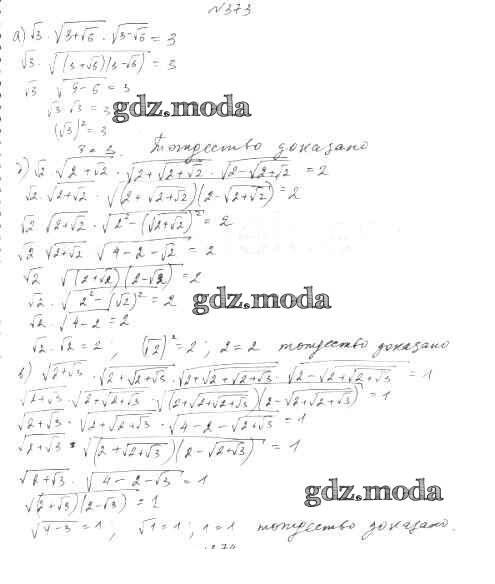 №373
а) √3 · √(3+√6) · √(3-√6) = 3
√3 · √((3+√6)(3-√6)) = 3
√3 √(9-6) = 3
√3 · √3 = 3
gdz.moda
(√3)² = 3
3 = 3. Тождество доказано
б) √2 · √(2+√2) · √(2+√(2+√2)) · √(2-√(2+√2)) = 2
√2 · √(2+√2) · √((2+√(2+√2))(2-√(2+√2))) = 2
√2 · √(2+√2) · √(2²-(√(2+√2))²) = 2
√2 √(2+√2) √(4-2-√2) = 2
√2 √((2+√2)(2-√2)) = 2
√2 · √(2²-(√2)²) = 2
gdz.moda
√2 · √(4-2) = 2
√2 · √2 = 2; (√2)² = 2; 2 = 2 тождество доказано
в) √(2+√3) · √(2+√(2+√3)) · √(2+√(2+√(2+√3))) · √(2-√(2+√(2+√3))) = 1
√(2+√3) · √(2+√(2+√3)) · √((2+√(2+√(2+√3)))(2-√(2+√(2+√3)))) = 1
√(2+√3) · √(2+√(2+√3)) · √(4-2-√(2+√3)) = 1
√(2+√3) · √((2+√(2+√3))(2-√(2+√3))) = 1
√(2+√3) · √(4-2-√3) = 1
gdz.moda
√((2+√3)(2-√3)) = 1
√(4-3) = 1; √1 = 1; 1 = 1 тождество доказано.